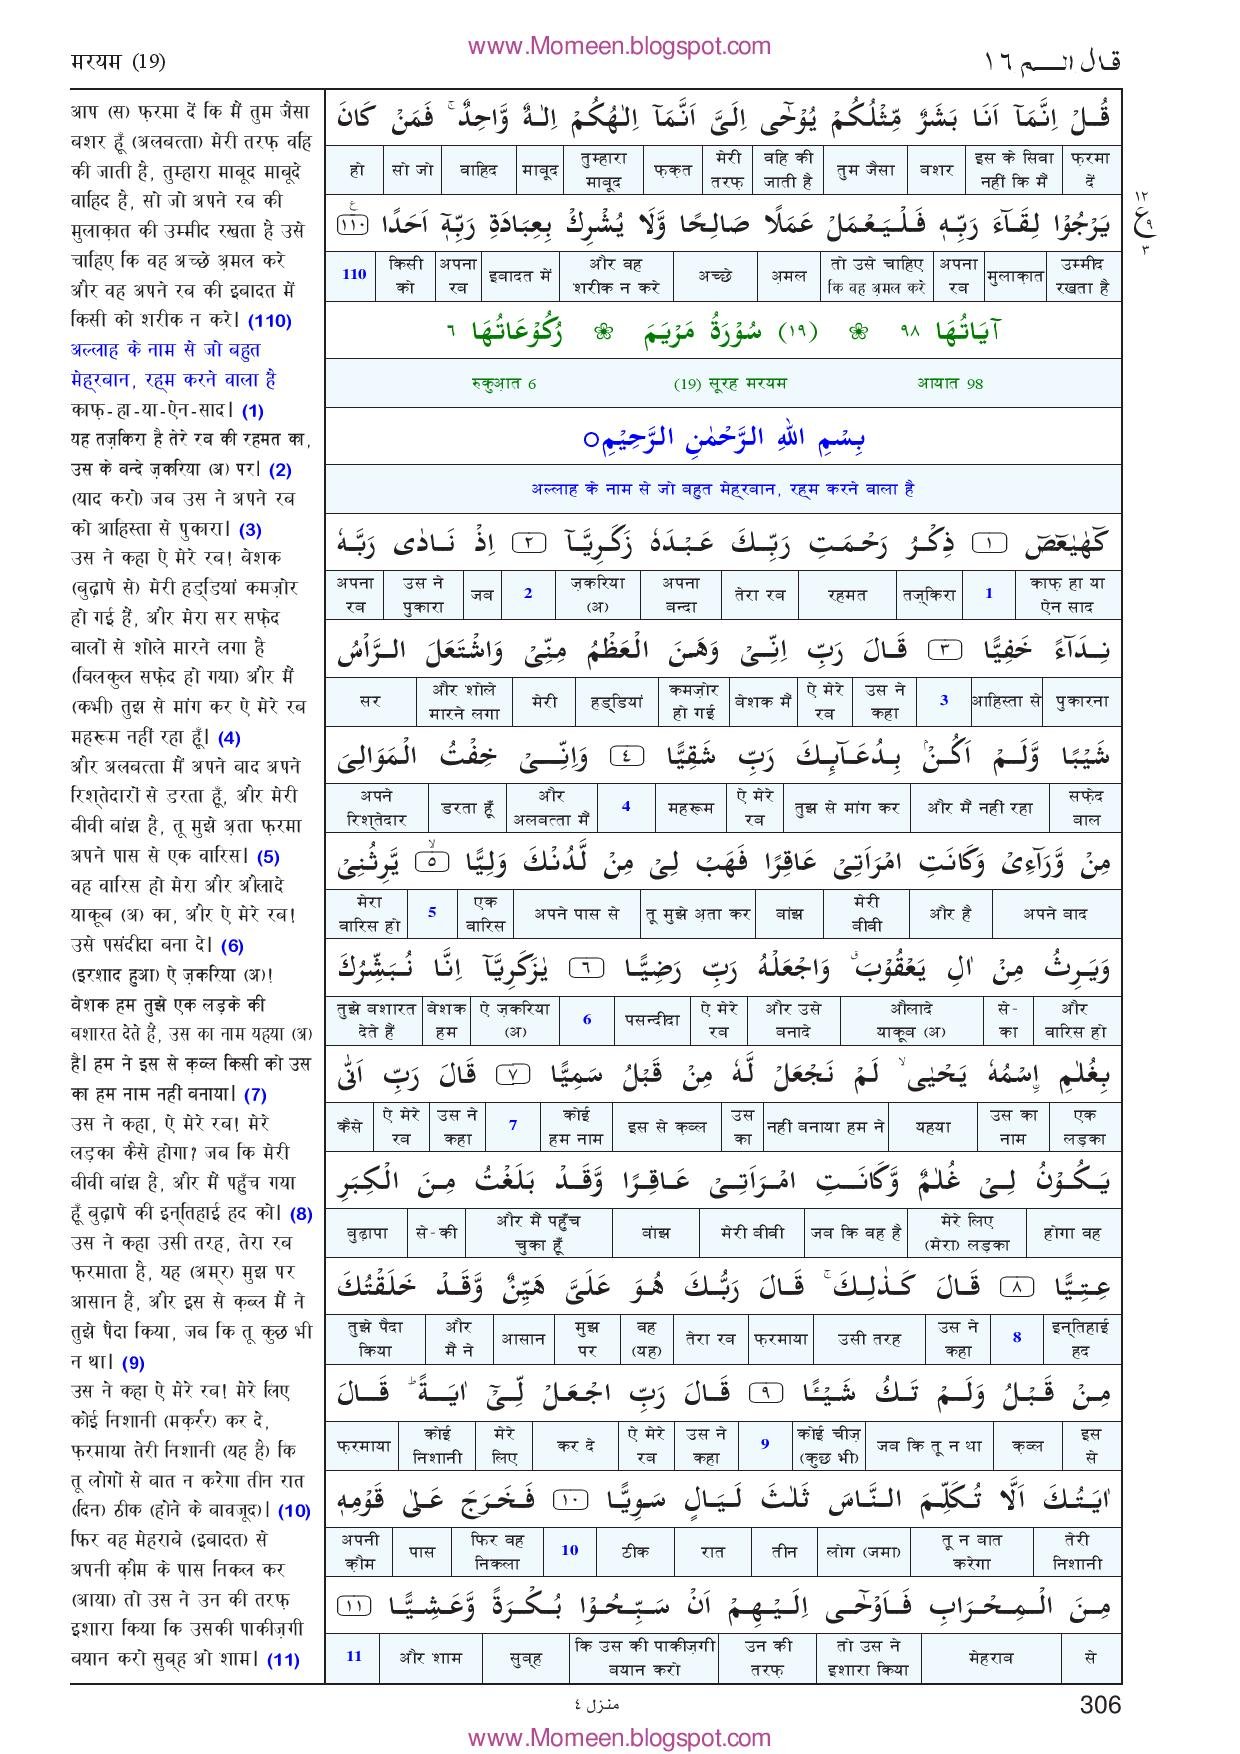 www.Momeen.blogspot.com
मरयम (19)
قـال الـــم ١٦
आप (स) फ़रमा दें कि मैं तुम जैसा
बशर हूँ (अलबत्ता) मेरी तरफ़ वहि
की जाती है, तुम्हारा माबूद माबूदे
वाहिद है, सो जो अपने रब की
मुलाक़ात की उम्मीद रखता है उसे
चाहिए कि वह अच्छे अ़मल करे
और वह अपने रब की इबादत में
किसी को शरीक न करे। (110)
अल्लाह के नाम से जो बहुत
मेह्रबान, रह्म करने वाला है
काफ़-हा-या-ऐन-साद। (1)
यह तज़किरा है तेरे रब की रहमत का,
उस के बन्दे ज़करिया (अ) पर। (2)
(याद करो) जब उस ने अपने रब
को आहिस्ता से पुकारा। (3)
उस ने कहा ऐ मेरे रब! बेशक
(बुढ़ापे से) मेरी हड्डियां कमज़ोर
हो गई हैं, और मेरा सर सफ़ेद
बालों से शोले मारने लगा है
(बिलकुल सफ़ेद हो गया) और मैं
(कभी) तुझ से मांग कर ऐ मेरे रब
महरूम नहीं रहा हूँ। (4)
और अलबत्ता मैं अपने बाद अपने
रिश्तेदारों से डरता हूँ, और मेरी
बीवी बांझ है, तू मुझे अ़ता फ़रमा
अपने पास से एक वारिस। (5)
वह वारिस हो मेरा और औलादे
याकूब (अ) का, और ऐ मेरे रब!
उसे पसंदीदा बना दे। (6)
(इरशाद हुआ) ऐ ज़करिया (अ)!
बेशक हम तुझे एक लड़के की
बशारत देते हैं, उस का नाम यहया (अ)
है। हम ने इस से क़ब्ल किसी को उस
का हम नाम नहीं बनाया। (7)
उस ने कहा, ऐ मेरे रब! मेरे
लड़का कैसे होगा? जब कि मेरी
बीवी बांझ है, और मैं पहुँच गया
हूँ बुढ़ापे की इन्तिहाई हद को। (8)
उस ने कहा उसी तरह, तेरा रब
फ़रमाता है, यह (अम्र) मुझ पर
आसान है, और इस से क़ब्ल मैं ने
तुझे पैदा किया, जब कि तू कुछ भी
न था। (9)
उस ने कहा ऐ मेरे रब! मेरे लिए
कोई निशानी (मक़र्रर) कर दे,
फ़रमाया तेरी निशानी (यह है) कि
तू लोगों से बात न करेगा तीन रात
(दिन) ठीक (होने के बावजूद)। (10)
फिर वह मेहराबे (इबादत) से
अपनी क़ौम के पास निकल कर
(आया) तो उस ने उन की तरफ़
इशारा किया कि उसकी पाकीज़गी
बयान करो सुब्ह ओ शाम। (11)
قُـلْ اِنَّمَآ اَنَا بَشَرٌ مِّثْلُكُمْ يُوْحٰٓى اِلَىَّ اَنَّمَآ اِلٰهُكُمْ اِلٰـهٌ وَّاحِدٌ ۚ فَمَنْ كَانَ
फ़रमा दें | इस के सिवा नहीं कि मैं | बशर | तुम जैसा | वहि की जाती है | मेरी तरफ़ | फ़क़त | तुम्हारा माबूद | माबूद | वाहिद | सो जो | हो
يَرْجُوْا لِقَـآءَ رَبِّـهٖ فَـلْـيَـعْـمَـلْ عَمَلًا صَـالِـحًا وَّلَا يُشْرِكْ بِعِبَادَةِ رَبِّـهٖٓ اَحَدًا ﴿١١٠﴾ ع
उम्मीद रखता है | मुलाक़ात | अपना रब | तो उसे चाहिए कि वह अ़मल करे | अ़मल | अच्छे | और वह शरीक न करे | इबादत में | अपना रब | किसी को | 110
١٢ ع ٩ ٣
آيَاتُـهَا ٩٨ ❀ (١٩) سُوْرَةُ مَرْيَمَ ❀ رُكُوْعَاتُـهَا ٦
आयात 98 (19) सूरह मरयम रुकुआ़त 6
بِـسْـمِ اللهِ الـرَّحْـمٰنِ الـرَّحِـيْـمِ ○
अल्लाह के नाम से जो बहुत मेह्रबान, रह्म करने वाला है
كٓـهٰيٰـعٓـصٓ ﴿١﴾ ذِكْـرُ رَحْـمَـتِ رَبِّـكَ عَـبْـدَهٗ زَكَـرِيَّـآ ﴿٢﴾ اِذْ نَـادٰى رَبَّـهٗ
काफ़ हा या ऐन साद | 1 | तज़्किरा | रहमत | तेरा रब | अपना बन्दा | ज़करिया (अ) | 2 | जब | उस ने पुकारा | अपना रब
نِـدَآءً خَفِيًّا ﴿٣﴾ قَـالَ رَبِّ اِنِّـىْ وَهَـنَ الْـعَظْمُ مِنِّىْ وَاشْتَعَلَ الـرَّاْسُ
पुकारना | आहिस्ता से | 3 | उस ने कहा | ऐ मेरे रब | बेशक मैं | कमज़ोर हो गई | हड्डियां | मेरी | और शोले मारने लगा | सर
شَيْبًا وَّلَـمْ اَكُـنْۢ بِـدُعَـآىِٕـكَ رَبِّ شَقِيًّا ﴿٤﴾ وَاِنِّـــىْ خِفْتُ الْـمَوَالِىَ
सफ़ेद बाल | और मैं नहीं रहा | तुझ से मांग कर | ऐ मेरे रब | महरूम | 4 | और अलबत्ता मैं | डरता हूँ | अपने रिश्तेदार
مِنْ وَّرَآءِىْ وَكَانَتِ امْرَاَتِىْ عَاقِرًا فَهَبْ لِىْ مِنْ لَّدُنْكَ وَلِيًّا ۙ﴿٥﴾ يَّرِثُنِىْ
अपने बाद | और है | मेरी बीवी | बांझ | तू मुझे अ़ता कर | अपने पास से | एक वारिस | 5 | मेरा वारिस हो
وَيَـرِثُ مِـنْ اٰلِ يَـعْقُوْبَ ۖ وَاجْعَلْهُ رَبِّ رَضِيًّـا ﴿٦﴾ يٰزَكَرِيَّـآ اِنَّـا نُـبَشِّـرُكَ
और वारिस हो | से-का | औलादे याकूब (अ) | और उसे बनादे | ऐ मेरे रब | पसन्दीदा | 6 | ऐ ज़करिया (अ) | बेशक हम | तुझे बशारत देते हैं
بِـغُلٰمِ ۨاسْمُهٗ يَـحْيٰى ۙ لَـمْ نَـجْعَلْ لَّـهٗ مِـنْ قَـبْلُ سَمِيًّا ﴿٧﴾ قَـالَ رَبِّ اَنّٰى
एक लड़का | उस का नाम | यहया | नहीं बनाया हम ने | उस का | इस से क़ब्ल | कोई हम नाम | 7 | उस ने कहा | ऐ मेरे रब | कैसे
يَـكُـوْنُ لِـىْ غُـلٰمٌ وَّكَانَـتِ امْـرَاَتِـىْ عَـاقِـرًا وَّقَـدْ بَـلَغْتُ مِـنَ الْـكِبَرِ
होगा वह | मेरे लिए (मेरा) लड़का | जब कि वह है | मेरी बीवी | बांझ | और मैं पहुँच चुका हूँ | से-की | बुढ़ापा
عِـتِـيًّا ﴿٨﴾ قَـالَ كَـذٰلِـكَ ۚ قَـالَ رَبُّـكَ هُـوَ عَلَىَّ هَيِّنٌ وَّقَـدْ خَلَقْتُكَ
इन्तिहाई हद | 8 | उस ने कहा | उसी तरह | फ़रमाया | तेरा रब | वह (यह) | मुझ पर | आसान | और मैं ने | तुझे पैदा किया
مِـنْ قَـبْـلُ وَلَـمْ تَـكُ شَـيْـئًـا ﴿٩﴾ قَـالَ رَبِّ اجْـعَـلْ لِّـىْٓ اٰيَـةً ؕ قَــالَ
इस से | क़ब्ल | जब कि तू न था | कोई चीज़ (कुछ भी) | 9 | उस ने कहा | ऐ मेरे रब | कर दे | मेरे लिए | कोई निशानी | फ़रमाया
اٰيَـتُـكَ اَلَّا تُـكَلِّـمَ الـنَّـاسَ ثَـلٰثَ لَـيَـالٍ سَـوِيًّـا ﴿١٠﴾ فَـخَـرَجَ عَـلٰى قَوْمِهٖ
तेरी निशानी | तू न बात करेगा | लोग (जमा) | तीन | रात | ठीक | 10 | फिर वह निकला | पास | अपनी क़ौम
مِـنَ الْـمِـحْـرَابِ فَـاَوْحٰٓـى اِلَـيْـهِـمْ اَنْ سَـبِّـحُـوْا بُـكْـرَةً وَّعَـشِـيًّـا ﴿١١﴾
से | मेहराब | तो उस ने इशारा किया | उन की तरफ़ | कि उस की पाकीज़गी बयान करो | सुब्ह | और शाम | 11
منزل ٤
306
www.Momeen.blogspot.com